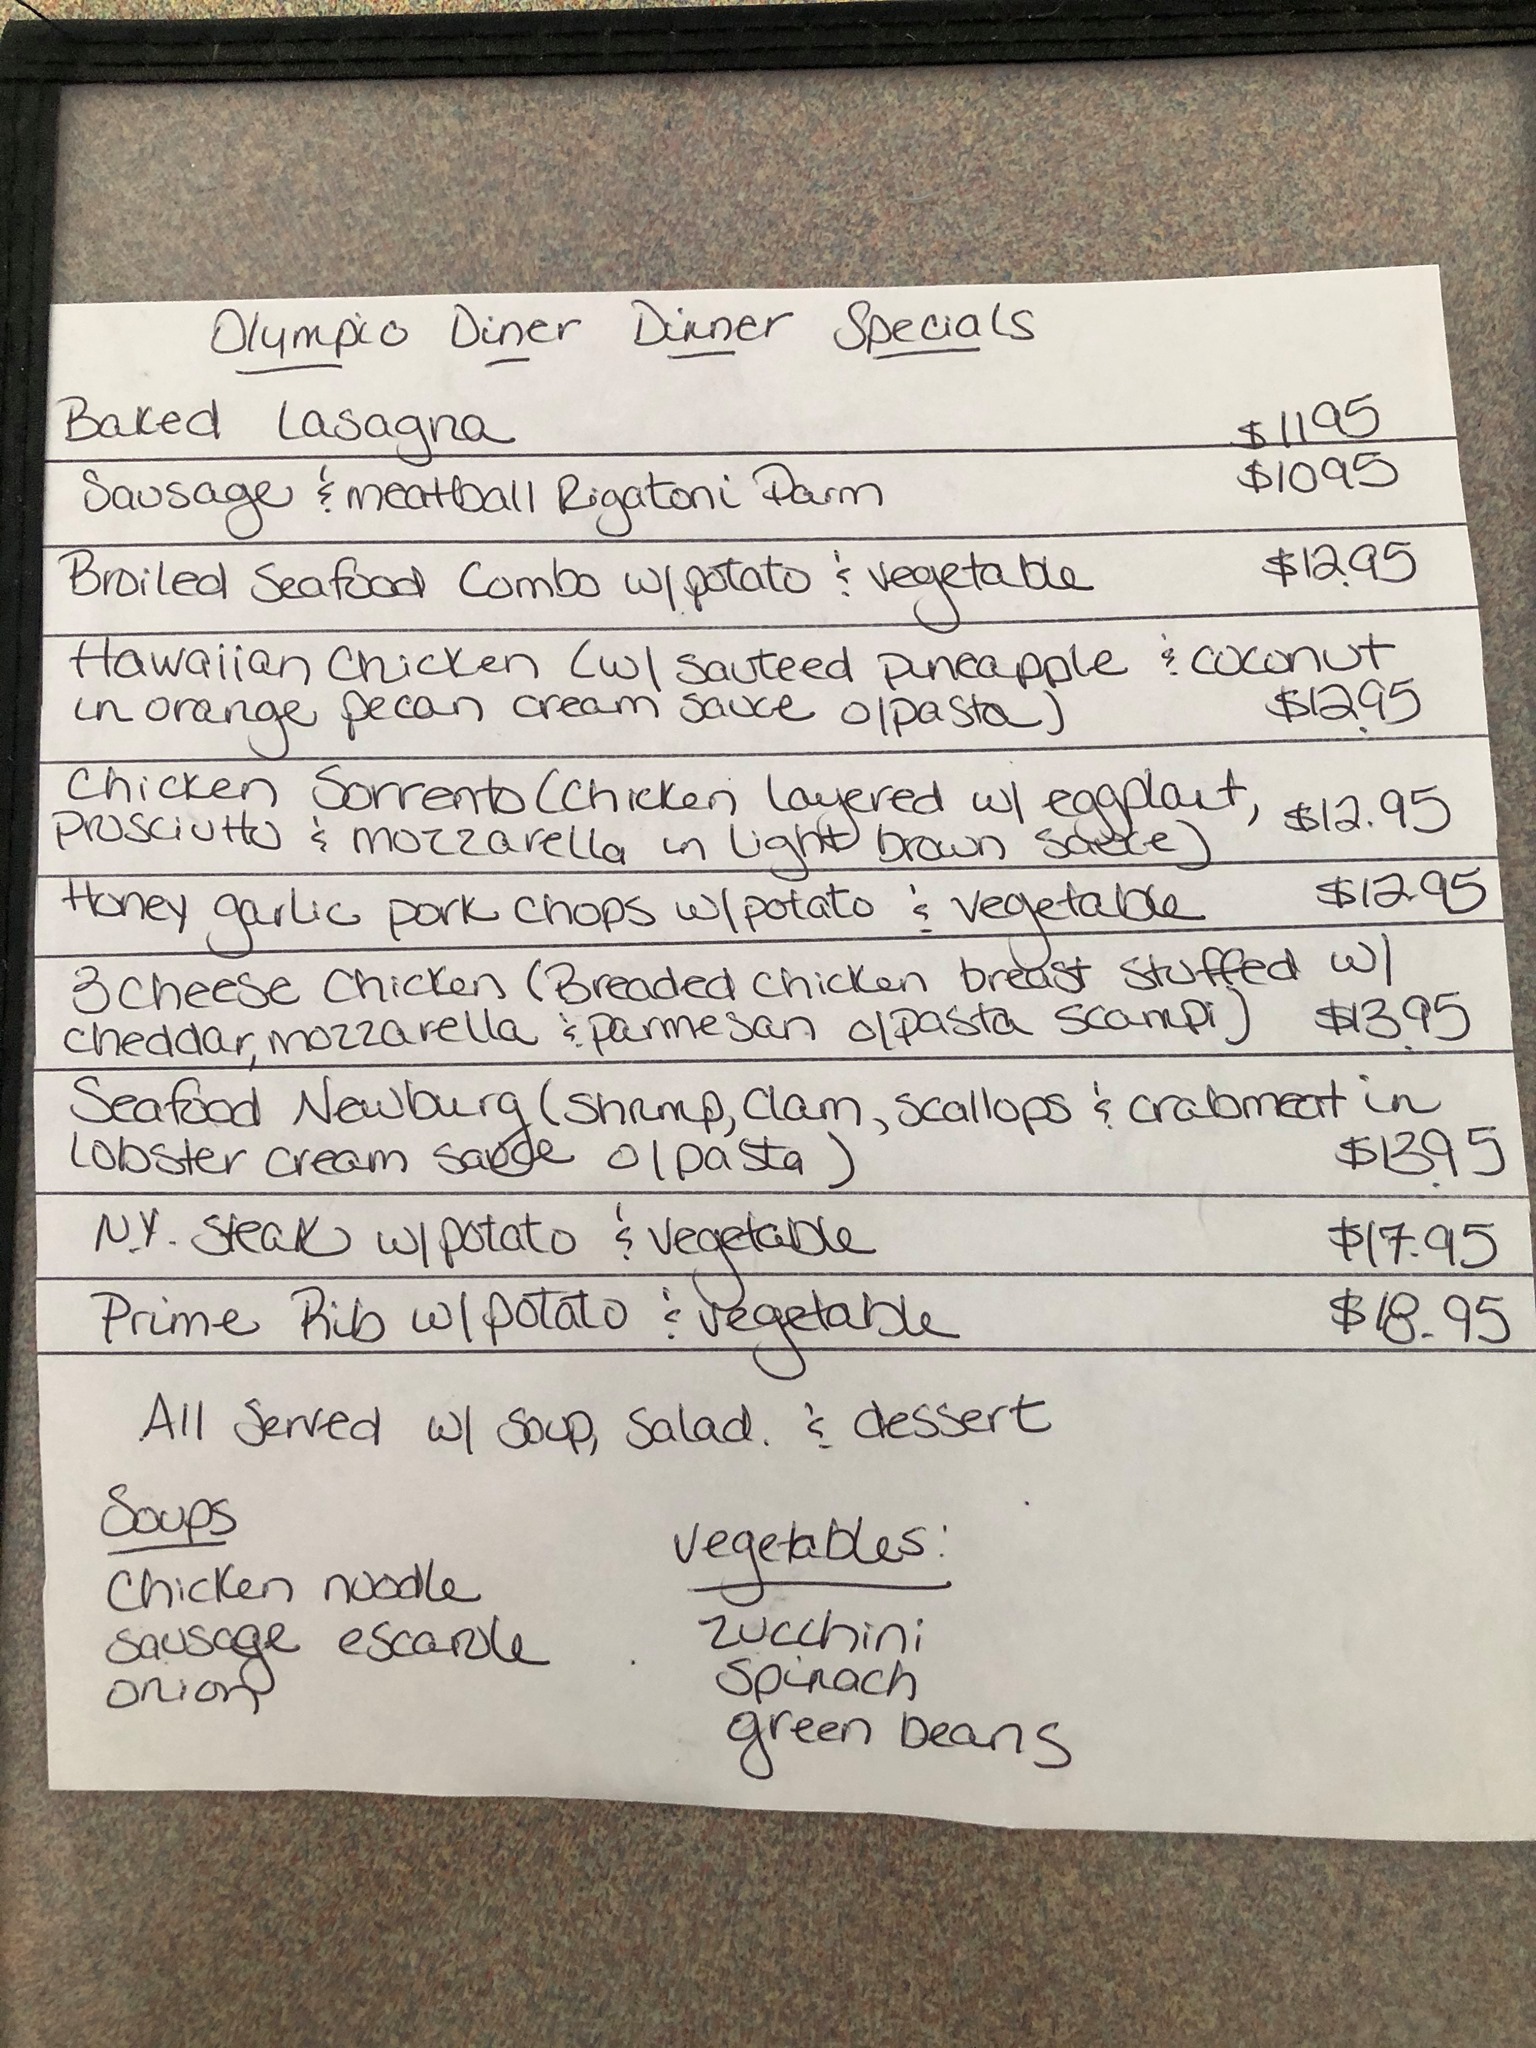 Olympic Diner Dinner Specials
Baked Lasagna $11.95
Sausage & meatball Rigatoni Parm $10.95
Broiled Seafood Combo w/potato & vegetable $12.95
Hawaiian Chicken (w/ sauteed pineapple & coconut
in orange pecan cream sauce o/pasta) $12.95
Chicken Sorrento (Chicken layered w/ eggplant,
Prosciutto & mozzarella in light brown sauce) $12.95
Honey garlic pork chops w/potato & vegetable $12.95
3 cheese Chicken (Breaded chicken breast stuffed w/
cheddar, mozzarella & parmesan o/pasta scampi) $13.95
Seafood Newburg (shrimp, clam, scallops & crabmeat in
lobster cream sauce o/pasta) $13.95
N.Y. Steak w/potato & vegetable $17.95
Prime Rib w/potato & vegetable $18.95
All served w/ soup, salad. & dessert
Soups
Chicken noodle
sausage escarole
onion
vegetables:
zucchini
spinach
green beans